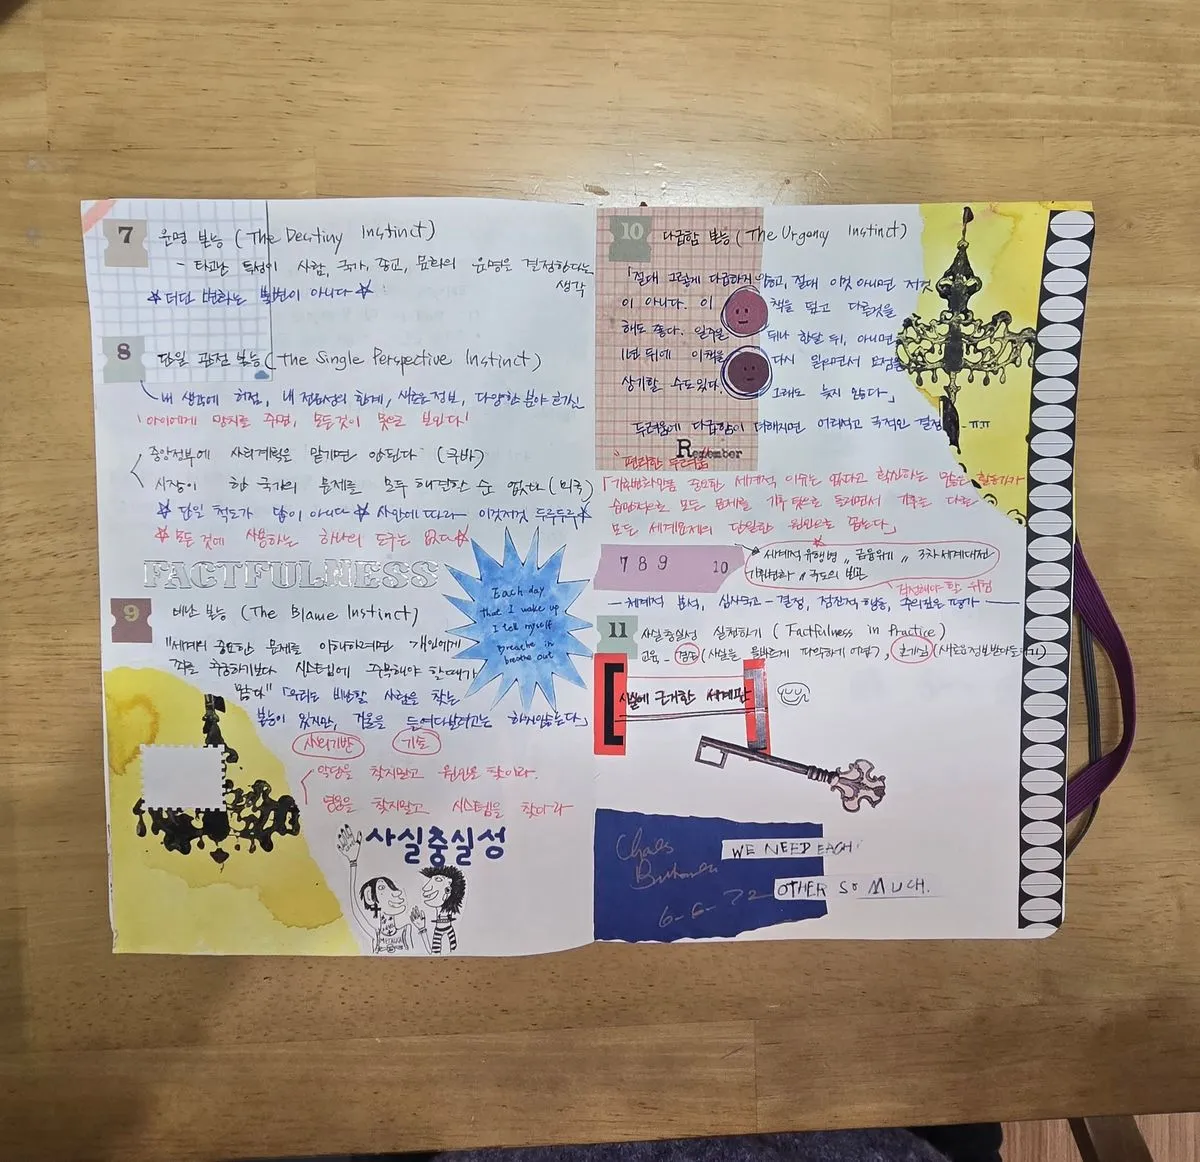 7
운명 본능 (The Destiny Instinct)
- 타고난 특성이 사람, 국가, 종교, 문화의 운명을 결정한다는
생각
☆ 더딘 변화는 불변이 아니다 ☆
8
단일 관점 본능 (The Single Perspective Instinct)
내 생각에 허점, 내 전문성의 한계, 새로운 정보, 다양한 분야
'아이에게 망치를 주면, 모든것이 못으로 보인다'
중앙정부에 사회계획을 맡기면 안된다 (쿠바)
시장이 한 국가의 문제를 모두 해결할 순 없다 (미국)
☆ 단일 척도가 답이 아니다 ☆ 사안에 따라 이것저것 두루두루 ☆
☆ 모든 것에 사용하는 하나의 도구는 없다 ☆
FACTFULNESS
Each day
that I wake up
I tell myself
breathe in
breathe out
9
비난 본능 (The Blame Instinct)
"세계의 중요한 문제를 이해하려면 개인에게
죄를 추궁하기보다 시스템에 주목해야 할때가
많다" 「우리는 비난할 사람을 찾는
본능이 있지만, 거울을 들여다보려고는 하지않는다」
사회기반 기술
악당을 찾지말고 원인을 찾아라.
영웅을 찾지말고 시스템을 찾아라
사실충실성
10
다급함 본능 (The Urgency Instinct)
「절대 그렇게 다급하지 않고, 절대 이것 아니면 저것
이 아니다. 이 책을 덮고 다른것을
해도 좋다. 일주일 뒤나 한달 뒤, 아니면
1년 뒤에 이책을 다시 읽으면서 요점을
상기할 수도있다. 그래도 늦지 않다」
두려움에 다급함이 더해지면 어리석고 극적인 결정 ㅠㅠ
Remember
"편리한 두려움
「기후변화만큼 중요한 세계적 이슈는 없다고 확신하는 많은 활동가가
습관적으로 모든 문제를 기후 탓으로 돌리면서 기후를 다른
모든 세계문제의 단일한 원인으로 꼽는다」
7 8 9 10
세계적 유행병 〃 금융위기 〃 3차 세계대전
기후변화 〃 극도의 빈곤
걱정해야 할 위험
체계적 분석, 심사숙고 - 결정, 점진적 행동, 주의깊은 평가
11
사실충실성 실천하기 (Factfulness in Practice)
교육 - 겸손 (사실을 올바르게 파악하기 어렵기), 호기심 (새로운정보받아들이기)
사실에 근거한 세계관
Charles
6-6-72
WE NEED EACH
OTHER SO MUCH.